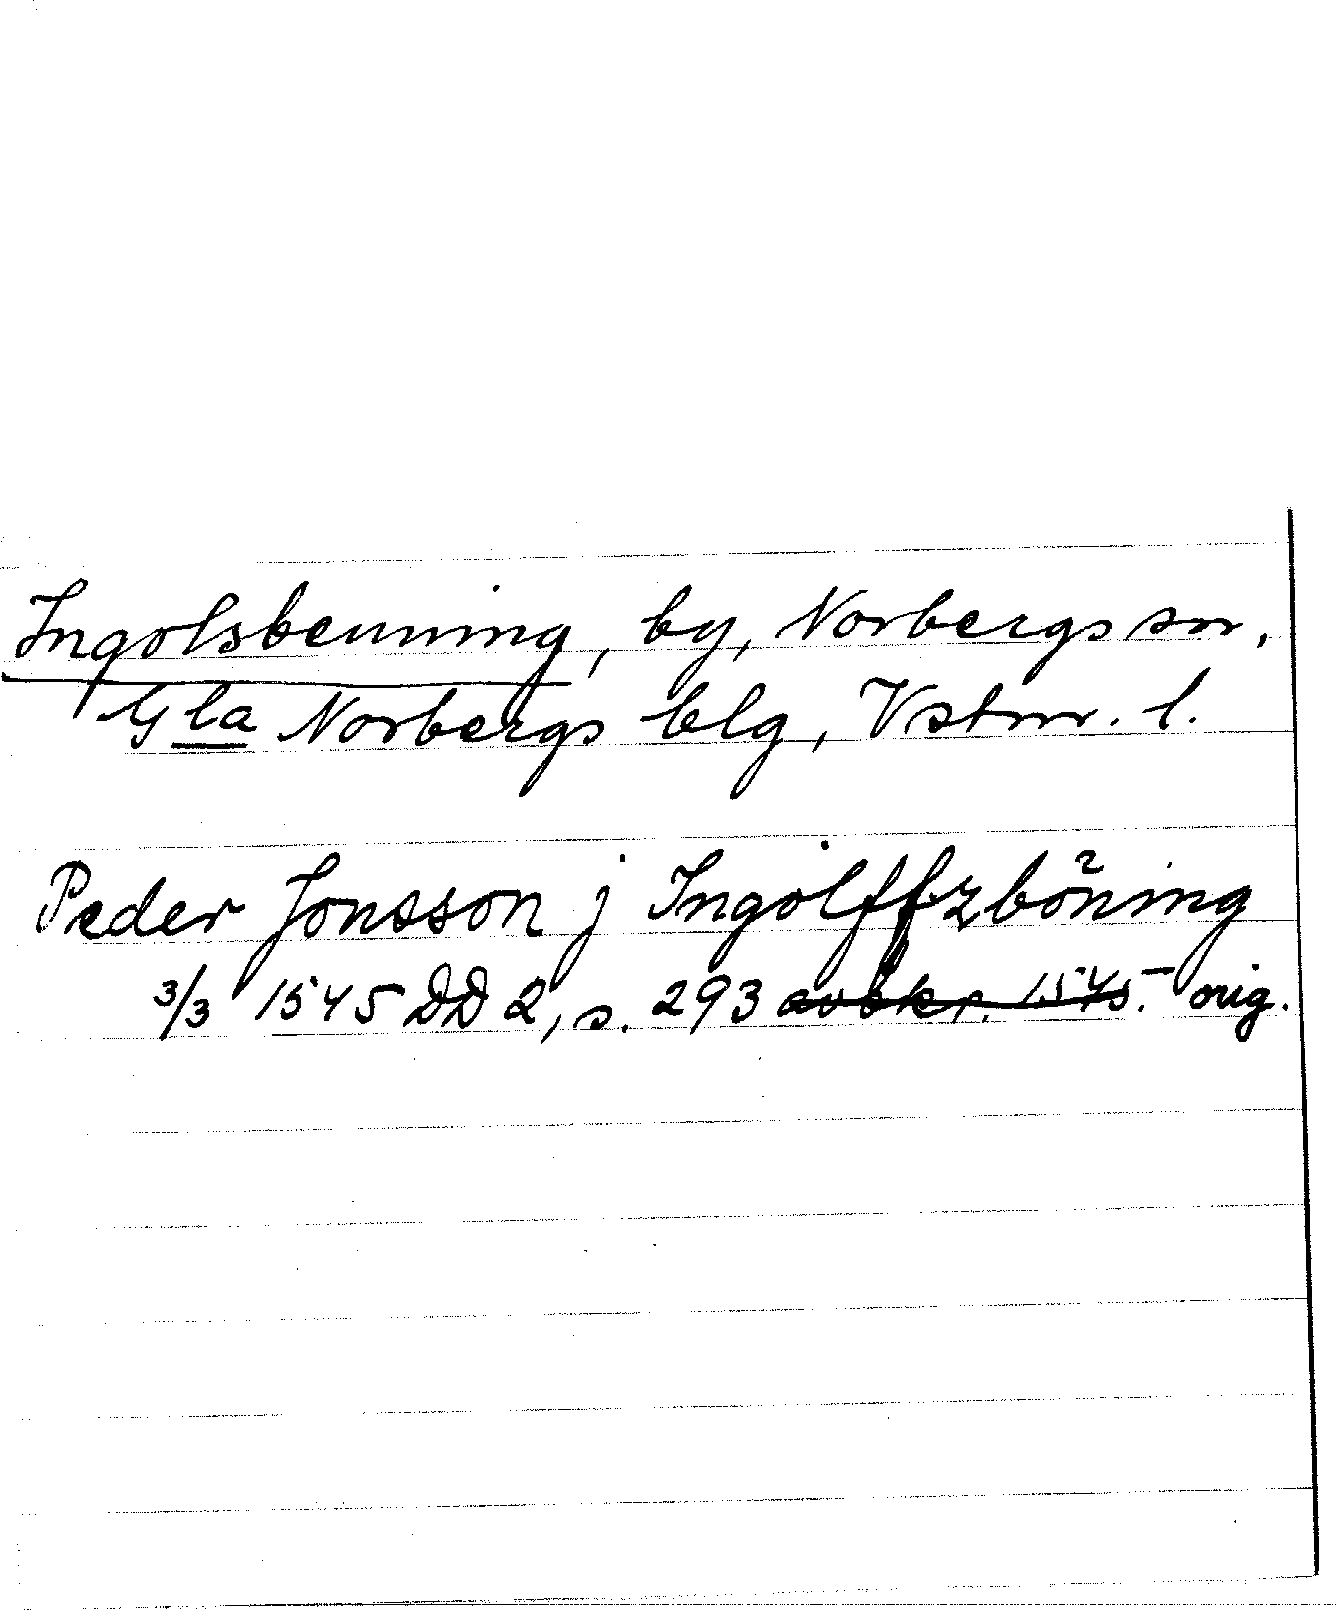 Ingolsbenning, by, Norbergs sn,
Gla Norbergs blg, Vstm. l.
Peder Jonsson j Ingolffzböning
3/3 1545 DD 2, s. 293 avskr. 1545. orig.